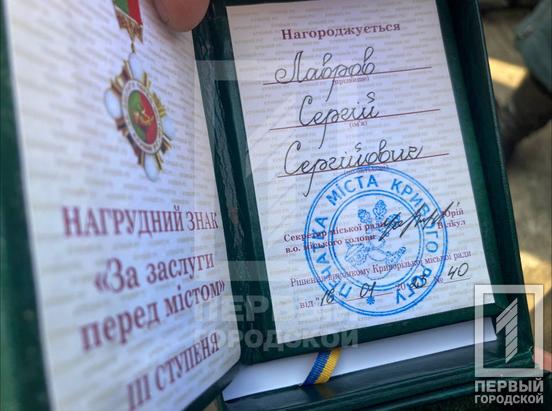 НАГРУДНИЙ ЗНАК
«За заслуги
перед містом»
III СТУПЕНЯ
Нагороджується
Лавров
(прізвище)
Сергій
(ім'я)
Сергійович
Секретар міської ради Юрій
в.о. міського голови Вілкул
ПЕЧАТКА МІСТА КРИВОГО РОГУ
Рішення виконкому Криворізької міської ради
від "18" 01 № 40
ПЕРВЫЙ
ГОРОДСКОЙ
ПЕРВЫЙ
ГОРОДСКОЙ
1
ПЕРВЫЙ
ГОРОДСКОЙ